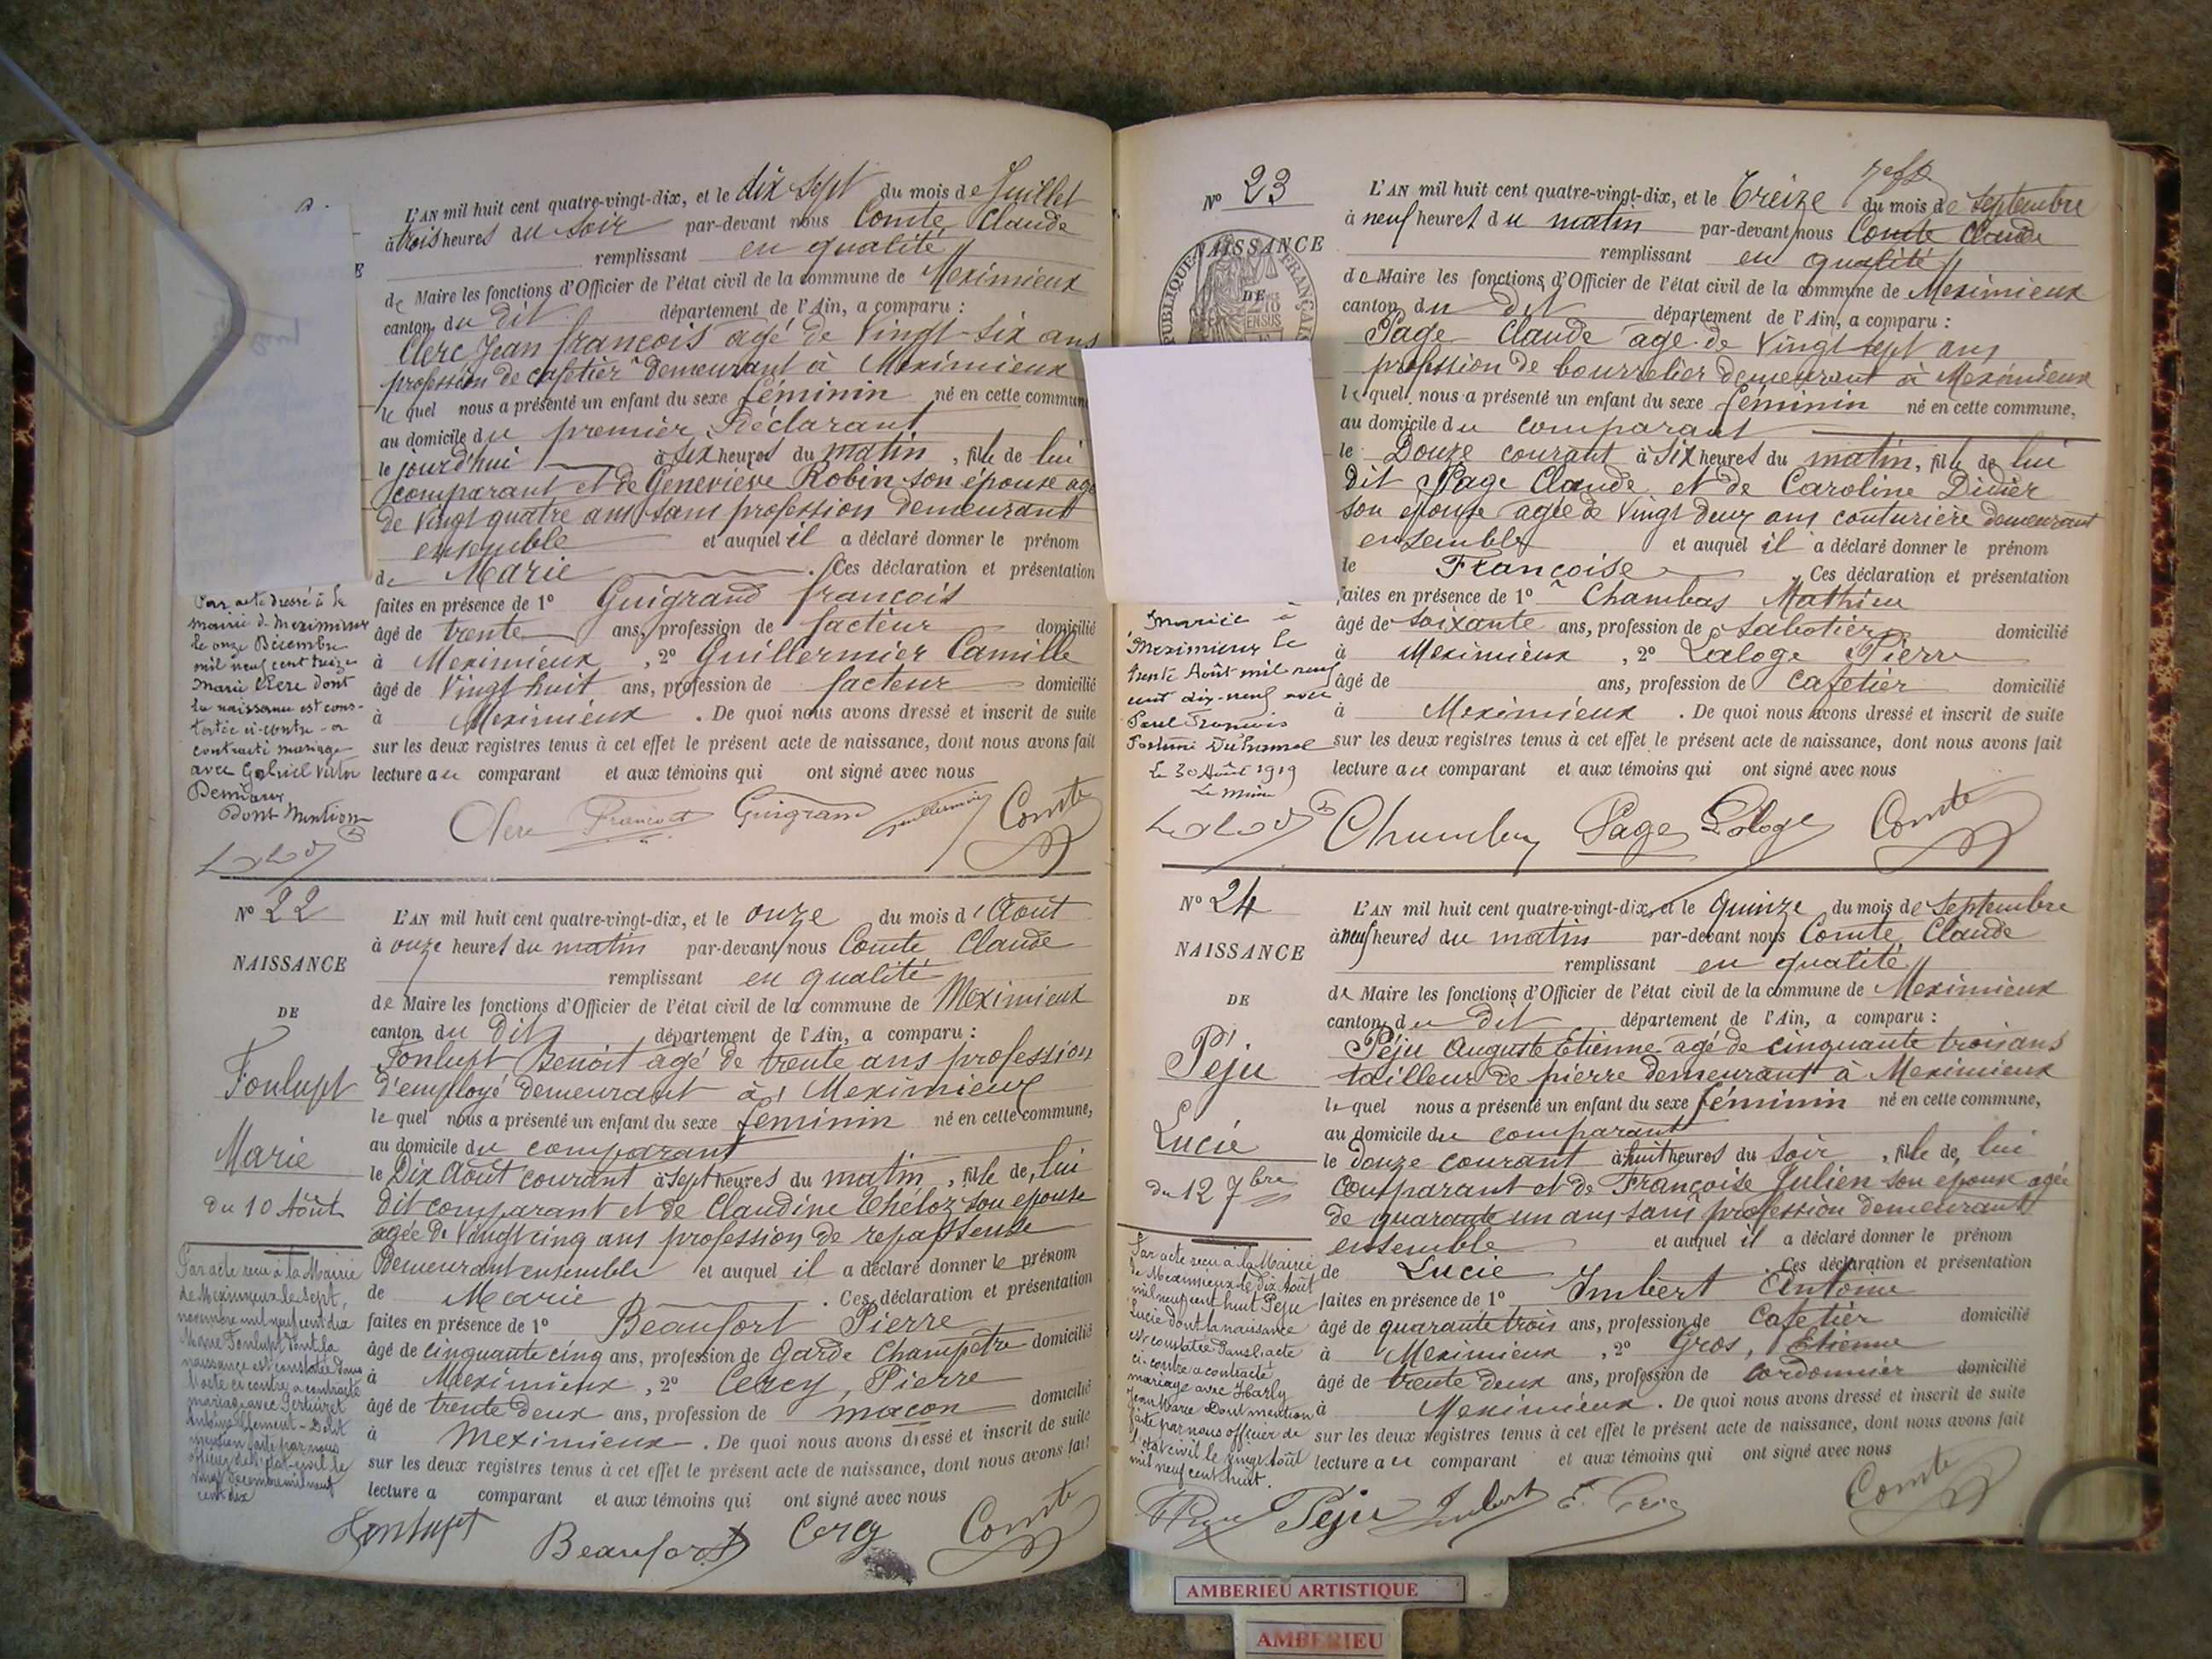 L'AN mil huit cent quatre-vingt-dix, et le dix sept du mois de Juillet
à trois heures du soir par-devant nous Comte Claude
remplissant en qualité
de Maire les fonctions d'Officier de l'état civil de la commune de Meximieux
canton du dit département de l'Ain, a comparu :
Clerc Jean françois agé de Vingt-six ans
profession de cafetier demeurant à Meximieux
le quel nous a présenté un enfant du sexe féminin né en cette commune
au domicile du premier Déclarant
le jourd'hui à six heures du matin, fille de lui
comparant et de Geneviève Robin son épouse agé
de Vingt quatre ans sans profession demeurant
ensemble et auquel il a déclaré donner le prénom
de Marie . Ces déclaration et présentation
faites en présence de 1° Guigrand françois
âgé de trente ans, profession de facteur domicilié
à Meximieux, 2° Guillermier Camille
âgé de Vingt huit ans, profession de facteur domicilié
à Meximieux . De quoi nous avons dressé et inscrit de suite
sur les deux registres tenus à cet effet le présent acte de naissance, dont nous avons fait
lecture au comparant et aux témoins qui ont signé avec nous
Clerc François Guigrand Guillermier Comte
Par acte dressé à la
mairie de Meximieux
le onze Décembre
mil neuf cent treize
Marie Clerc dont
la naissance est cons-
tatée ci-contre a
contracté mariage
avec Gabriel Victor
dont Mention
N° 22
NAISSANCE
DE
Fonlupt
Marie
du 10 Août
L'AN mil huit cent quatre-vingt-dix, et le onze du mois d'Août
à onze heures du matin par-devant nous Comte Claude
remplissant en qualité
de Maire les fonctions d'Officier de l'état civil de la commune de Meximieux
canton du dit département de l'Ain, a comparu :
Fonlupt Benoit agé de trente ans profession
d'employé demeurant à Meximieux
le quel nous a présenté un enfant du sexe féminin né en cette commune,
au domicile du comparant
le Dix Août courant à sept heures du matin, fille de, lui
dit comparant et de Claudine Théloz son épouse
agée de Vingt cinq ans profession de repasseuse
Demeurant ensemble et auquel il a déclaré donner le prénom
de Marie . Ces déclaration et présentation
faites en présence de 1° Beaufort Pierre
âgé de cinquante cinq ans, profession de Garde Champêtre domicilié
à Meximieux, 2° Cercy, Pierre
âgé de trente deux ans, profession de maçon domicilié
à Meximieux . De quoi nous avons dressé et inscrit de suite
sur les deux registres tenus à cet effet le présent acte de naissance, dont nous avons fait
lecture a comparant et aux témoins qui ont signé avec nous
Fonlupt Beaufort Cercy Comte
Par acte reçu à la Mairie
de Meximieux le sept,
novembre mil neuf cent dix
Marie Fonlupt dont la
naissance est constatée dans
l'acte ci contre a contracté
mariage avec
Antoine Clément - Dont
mention faite par nous
officier de l'état-civil le
vingt Décembre mil neuf
cent dix
N° 23
NAISSANCE
DE
L'AN mil huit cent quatre-vingt-dix, et le Treize du mois de Septembre
à neuf heures du matin par-devant nous Comte Claude
remplissant en qualité
de Maire les fonctions d'Officier de l'état civil de la commune de Meximieux
canton du Dit département de l'Ain, a comparu :
Page Claude age de Vingt sept ans
profession de bourrelier demeurant à Meximieux
le quel nous a présenté un enfant du sexe féminin né en cette commune,
au domicile du comparant
le Douze courant à six heures du matin, fille de lui
dit Page Claude et de Caroline Didier
son épouse agée de Vingt deux ans couturière demeurant
ensemble et auquel il a déclaré donner le prénom
le Françoise Ces déclaration et présentation
faites en présence de 1° Chambas Mathieu
âgé de soixante ans, profession de Sabotier domicilié
à Meximieux, 2° Laloge Pierre
âgé de ans, profession de Cafetier domicilié
à Meximieux . De quoi nous avons dressé et inscrit de suite
sur les deux registres tenus à cet effet le présent acte de naissance, dont nous avons fait
lecture au comparant et aux témoins qui ont signé avec nous
Page Laloge Comte
Mariée à
Meximieux le
trente Août mil neuf
cent dix-neuf avec
Paul François
Duhamel
Le 30 Août 1919
Le Maire
N° 24
NAISSANCE
DE
Péju
Lucie
du 12 7bre
L'AN mil huit cent quatre-vingt-dix, et le Quinze du mois de Septembre
à neuf heures du matin par-devant nous Comte Claude
remplissant en qualité
de Maire les fonctions d'Officier de l'état civil de la commune de Meximieux
canton du Dit département de l'Ain, a comparu :
Péju Auguste Etienne agé de cinquante trois ans
tailleur de pierre demeurant à Meximieux
le quel nous a présenté un enfant du sexe féminin né en cette commune,
au domicile du comparant
le douze courant à huit heures du soir, fille de, lui
Comparant et de Françoise Julien son épouse agée
de quarante un ans sans profession demeurant
ensemble et auquel il a déclaré donner le prénom
de Lucie . Ces déclaration et présentation
faites en présence de 1° Imbert Antoine
âgé de quarante trois ans, profession de Cafetier domicilié
à Meximieux, 2° Gros, Etienne
âgé de trente deux ans, profession de Cordonnier domicilié
à Meximieux . De quoi nous avons dressé et inscrit de suite
sur les deux registres tenus à cet effet le présent acte de naissance, dont nous avons fait
lecture au comparant et aux témoins qui ont signé avec nous
Péju Imbert E. Gros Comte
Par acte reçu à la Mairie
de Meximieux le dix Août
mil neuf cent huit Péju
Lucie dont la naissance
est constatée dans l'acte
ci-contre a contracté
mariage avec Harly
Jean Marie Dont mention
faite par nous officier de
l'état civil le vingt Août
mil neuf cent huit.
AMBERIEU ARTISTIQUE
AMBERIEU